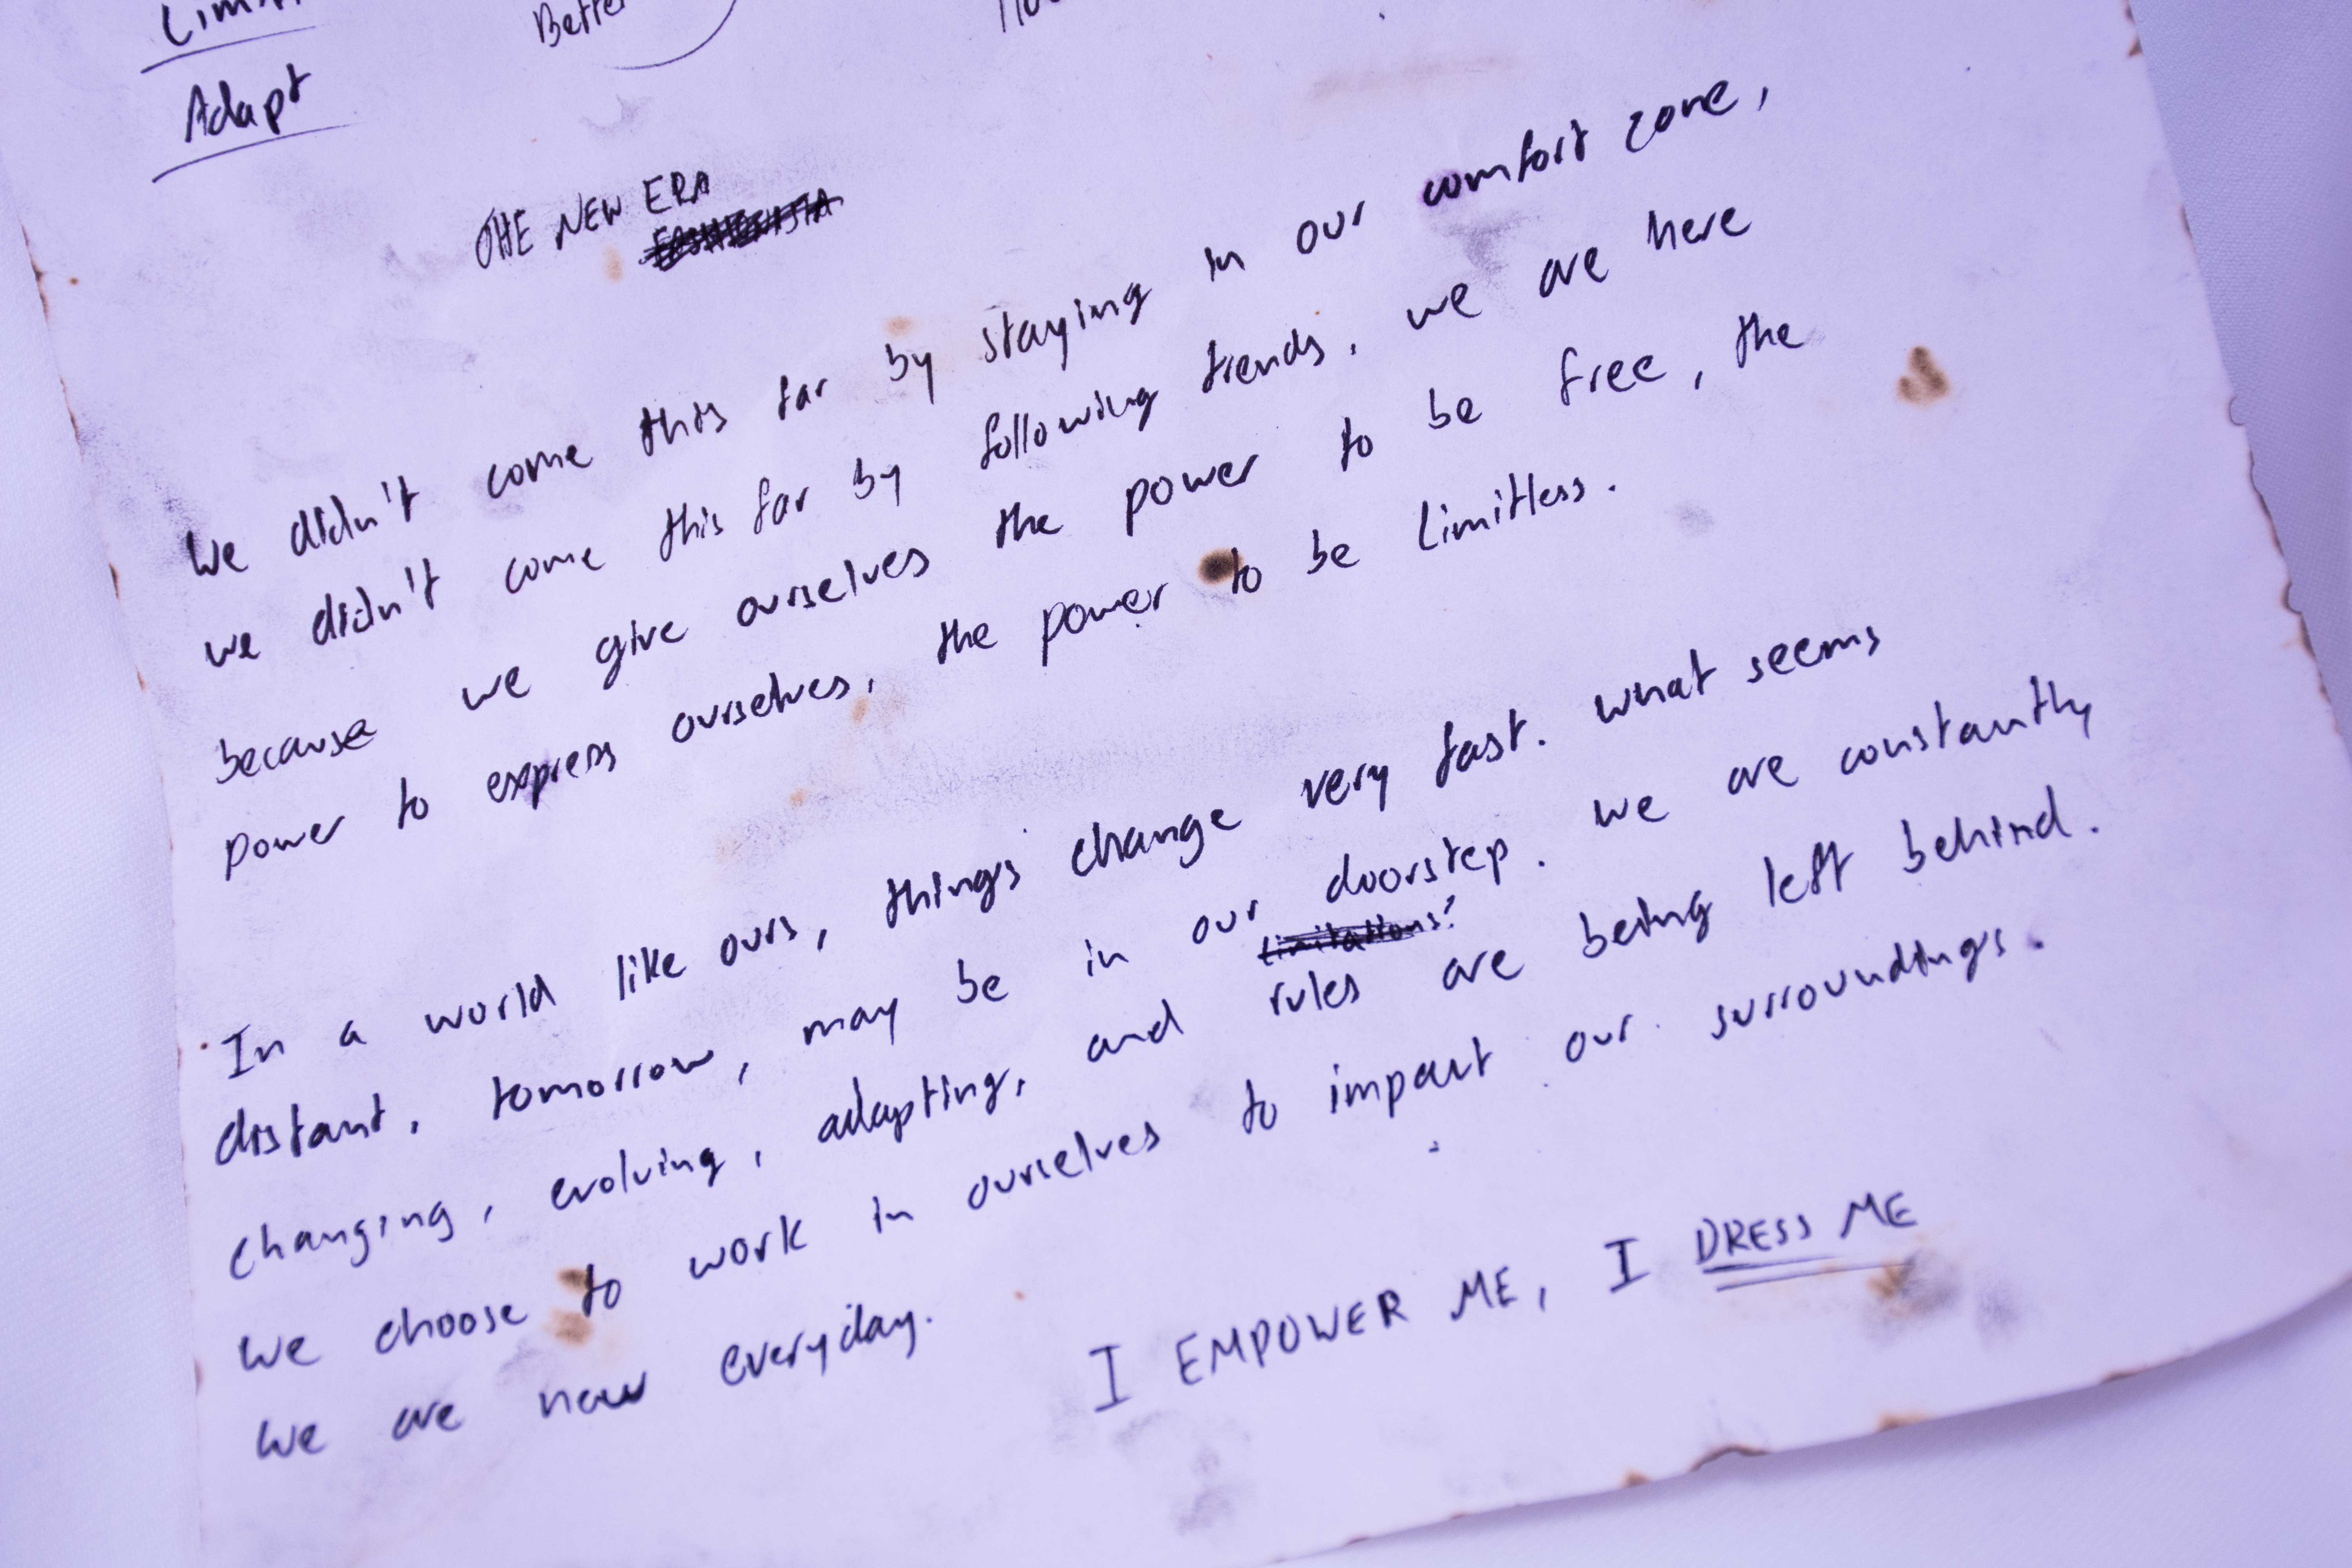 Adapt
Better
THE NEW ERA
We didn't come this far by staying in our comfort zone,
we didn't come this far by following trends, we are here
because we give ourselves the power to be free, the
power to express ourselves, the power to be limitless.
In a world like ours, things change very fast. what seems
distant, tomorrow, may be in our doorstep. we are constantly
limitations?
changing, evolving, adapting, and rules are being left behind.
We choose to work in ourselves to impact our surroundings.
We are new everyday.
I EMPOWER ME, I DRESS ME